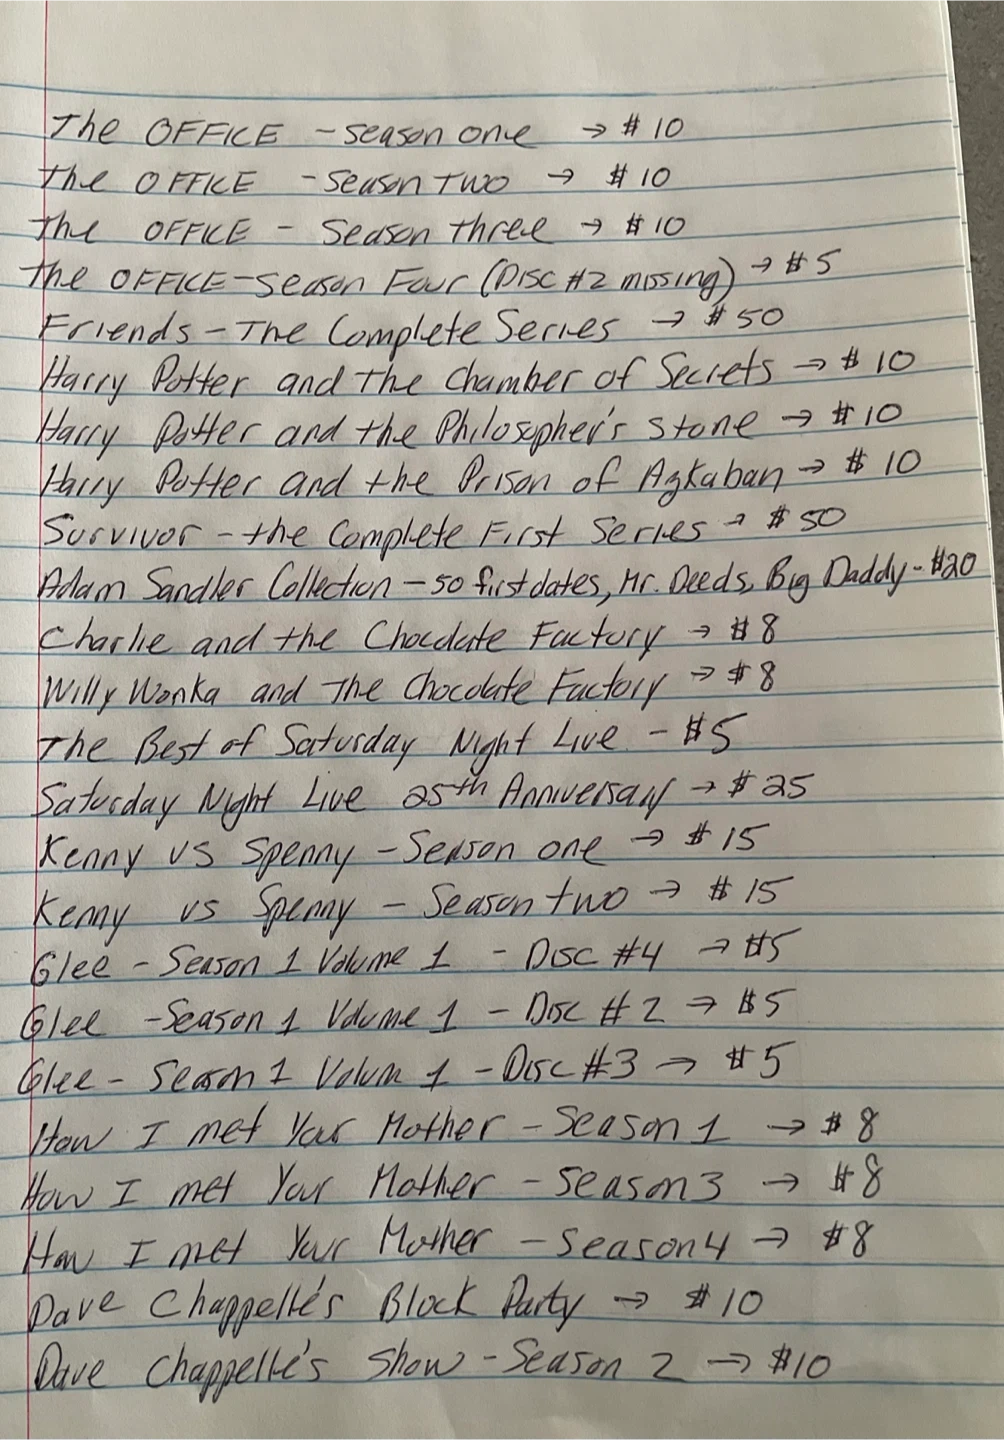 The OFFICE - Season one → $10
The OFFICE - Season Two → $10
The OFFICE - Season three → $10
The OFFICE - Season Four (Disc #2 missing) → $5
Friends - The Complete Series → $50
Harry Potter and The Chamber of Secrets → $10
Harry Potter and the Philosopher's Stone → $10
Harry Potter and the Prison of Azkaban → $10
Survivor - the Complete First Series → $50
Adam Sandler Collection - 50 first dates, Mr. Deeds, Big Daddy - $20
Charlie and the Chocolate Factory → $8
Willy Wonka and The Chocolate Factory → $8
The Best of Saturday Night Live - $5
Saturday Night Live 25th Anniversary → $25
Kenny vs Spenny - Season one → $15
Kenny vs Spenny - Season two → $15
Glee - Season 1 Volume 1 - Disc #4 → $5
Glee - Season 1 Volume 1 - Disc #2 → $5
Glee - Season 1 Volum 1 - Disc #3 → $5
How I met Your Mother - Season 1 → $8
How I met Your Mother - Season 3 → $8
How I met Your Mother - Season 4 → $8
Dave Chappelle's Block Party → $10
Dave Chappelle's Show - Season 2 → $10